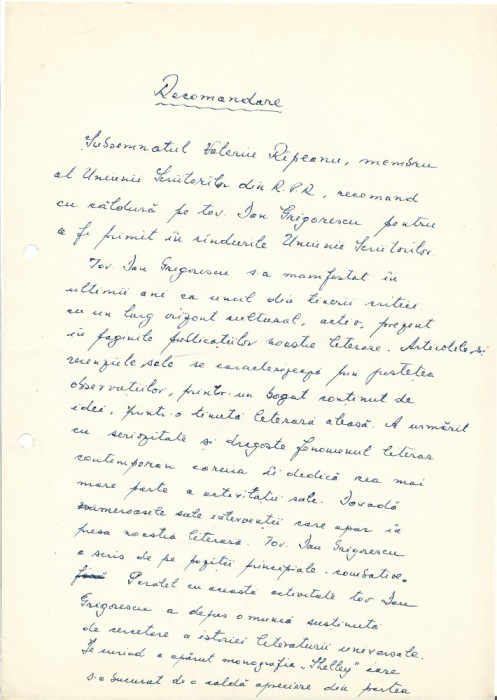 Recomandare
Subsemnatul Valeriu Rîpeanu, membru
al Uniunii Scriitorilor din R.P.R., recomand
cu căldură pe tov. Dan Grigorescu pentru
a fi primit în rîndurile Uniunii Scriitorilor.
Tov. Dan Grigorescu s-a manifestat în
ultimii ani ca unul din tinerii critici
cu un larg orizont cultural, activ, prezent
în paginile publicațiilor noastre literare. Articolele și
recenziile sale se caracterizează prin justețea
observațiilor, printr-un bogat conținut de
idei, printr-o ținută literară aleasă. A urmărit
cu seriozitate și dragoste fenomenul literar
contemporan căruia îi dedică cea mai
mare parte a activității sale. Dovadă
numeroasele sale intervenții care apar în
presa noastră literară. Tov. Dan Grigorescu
a scris de pe poziții principiale, combative.
Paralel cu această activitate tov. Dan
Grigorescu a depus o muncă susținută
de cercetare a istoriei literaturii universale.
De curînd a apărut monografia „Shelley" care
s-a bucurat de o caldă apreciere din partea